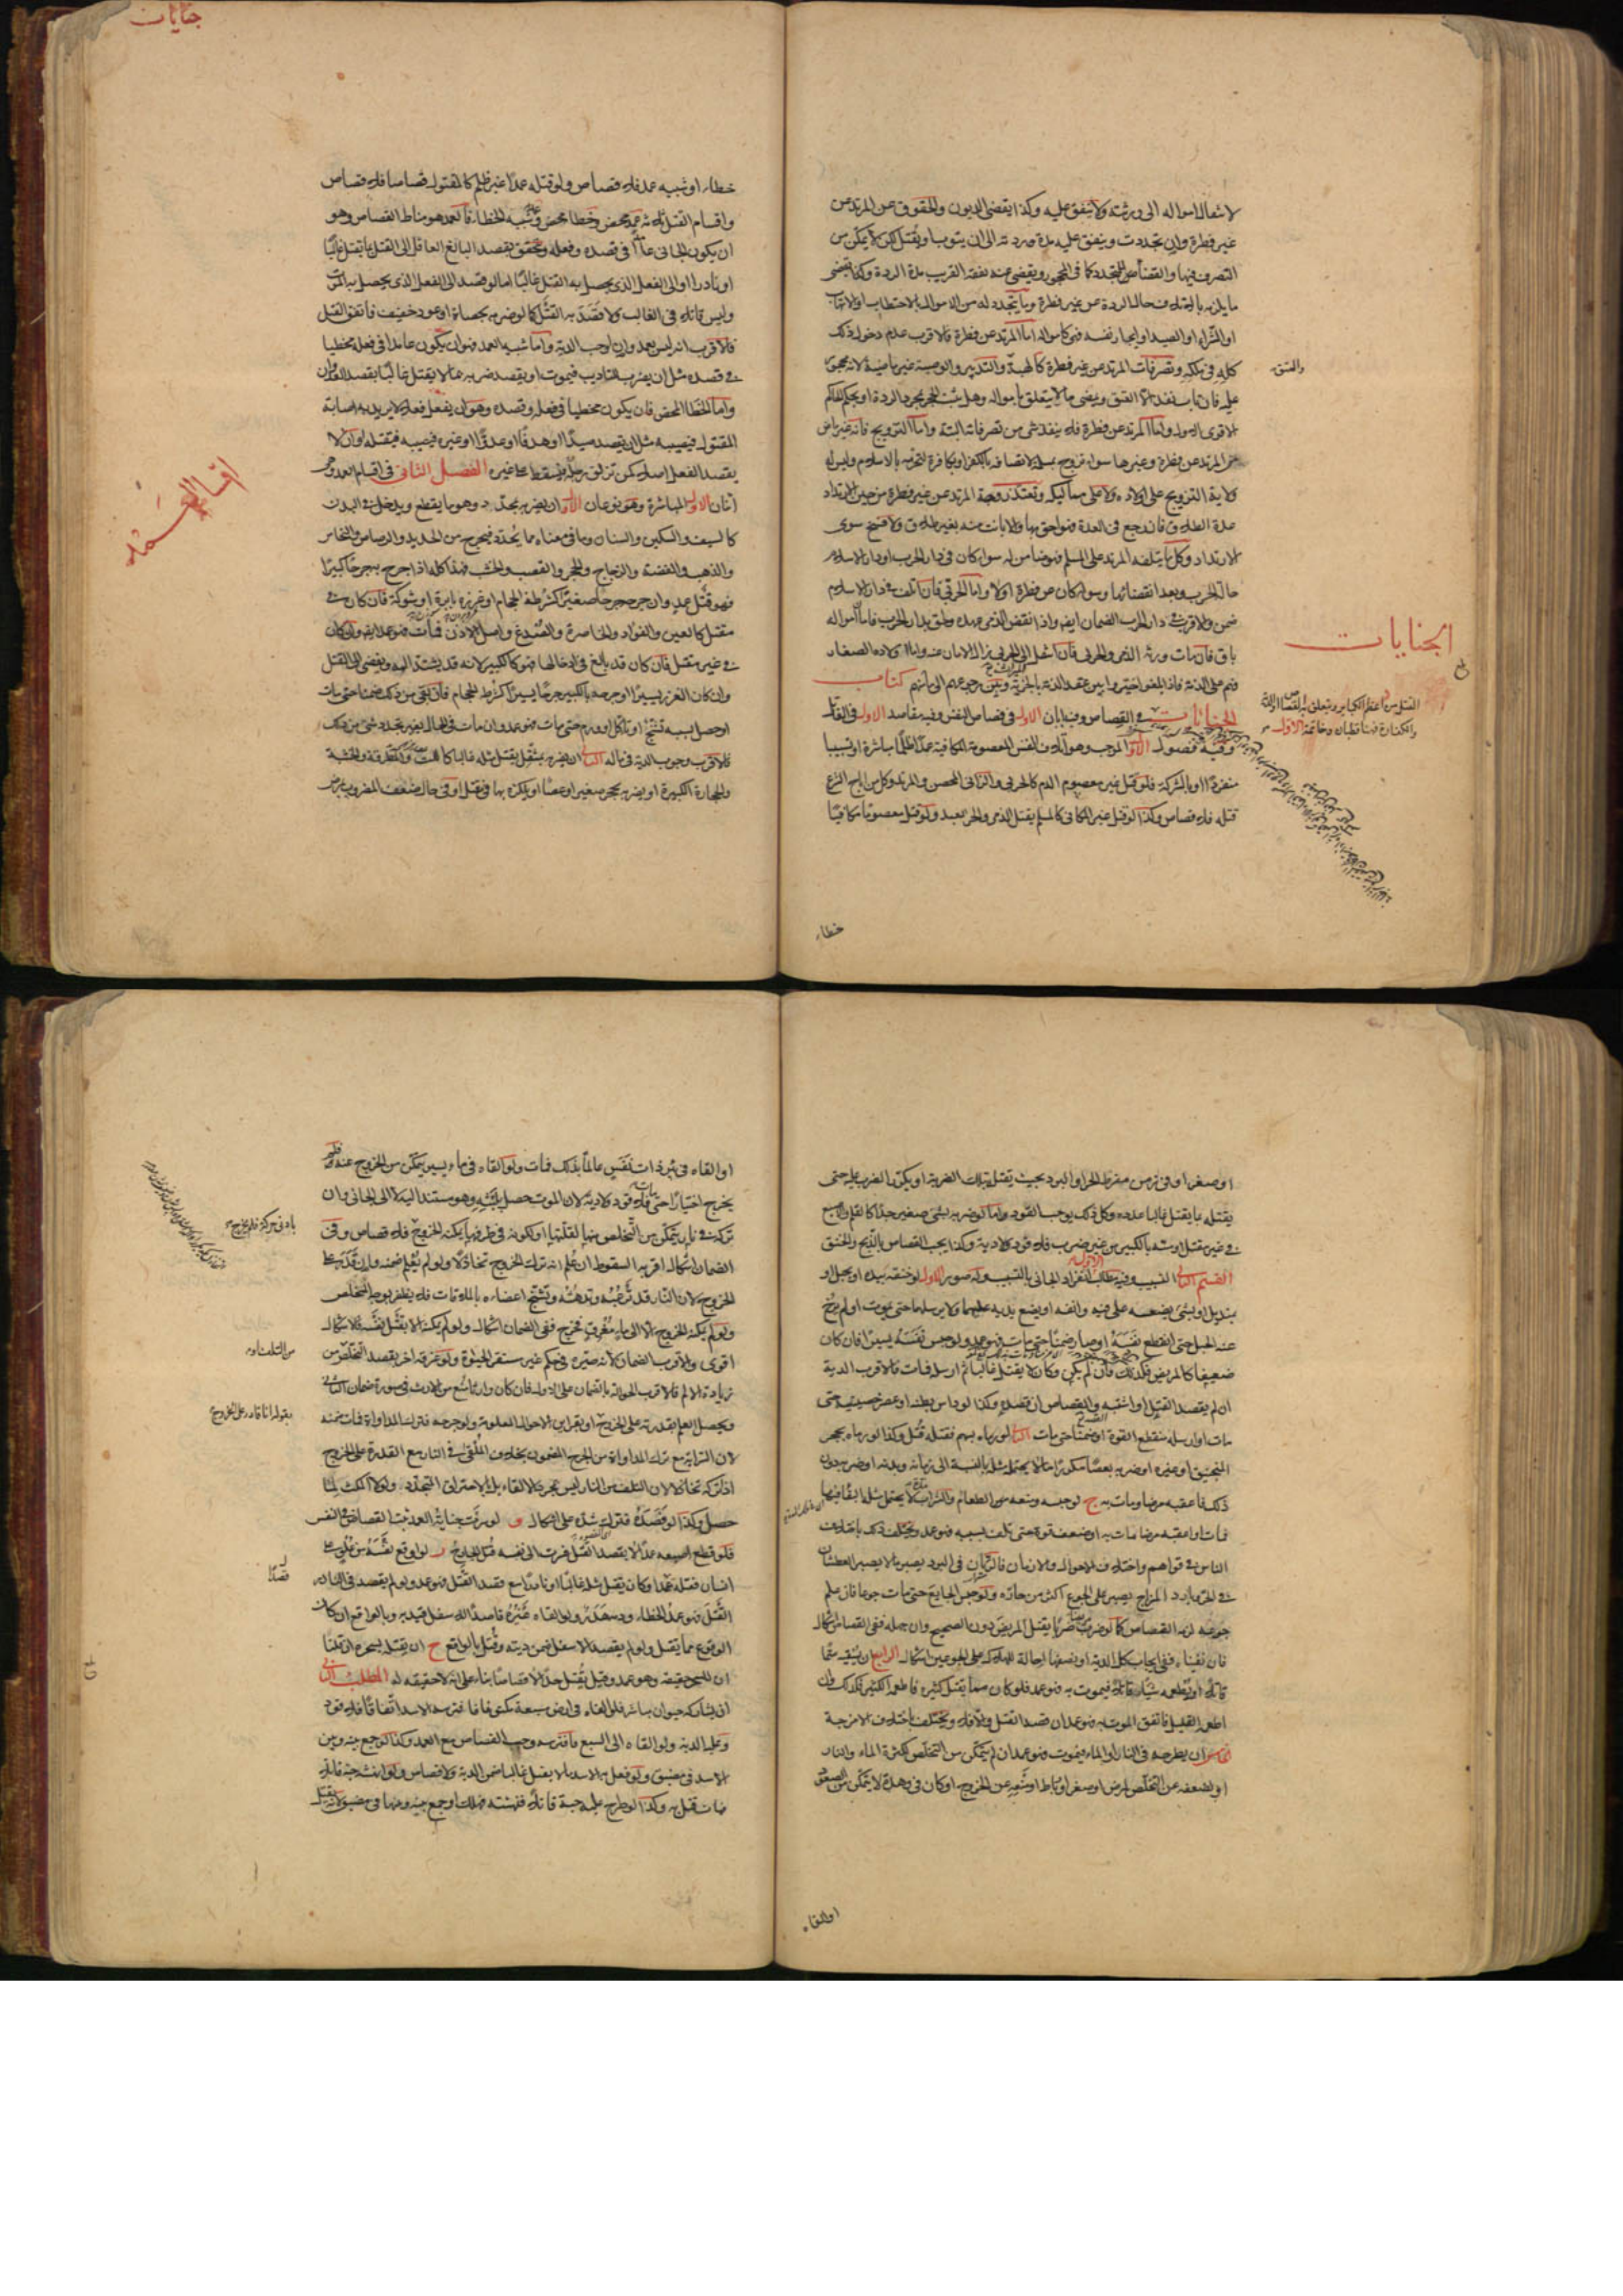 لانتقال امواله الى ورثته ولا ينفق عليه وكذا يقضى الديون والحقوق عن المرتد عن
غير فطرة وان تجددت وينفق عليه مدة ردته الى ان يتوب او يقتل لكن لا يمكن من
او الشراء او الصيد او ايجار نفسه فهي كامواله اما المرتد عن فطرة فالاقرب عدم دخول ذلك
كله في ملكه وتصرفات المرتد عن غير فطرة كالهبة والتدبير والوصية غير ماضية لانه محجور
والعتق
الاقوى الاول واما المرتد عن فطرة فلا ينفذ شئ من تصرفاته البتة واما التزويج فانه غير ماض
من المرتد عن فطرة وغيرها سواء تزوج بمسلمة لاتصافه بالكفر او بكافرة لتحرمه بالاسلام وليس له
ولاية التزويج على اولاده ولا على مماليكه وتعتد زوجة المرتد عن غير فطرة من حين الارتداد
عدة الطلاق فان رجع في العدة فهو احق بها والا بانت منه بغير طلاق ولا فسخ سوى
الارتداد وكل ما يتلفه المرتد على المسلم فهو ضامن له سواء كان في دار الحرب او دار الاسلام
حالة الحرب وبعد انقضائها وسواء كان عن فطرة او لا واما الحربي فان اتلف في دار الاسلام
ضمن والاقرب في دار الحرب الضمان ايضا واذا نقض الذمي عهده ولحق بدار الحرب فامان امواله
باق فان مات ورثه الذمي والحربي فان انتقل الى الحربي زال الامان عنه واما اولاده الصغار
فهم على الذمة فاذا بلغوا خيروا بين عقد الذمة بالجزية وبين رجوعهم الى مأمنهم كتاب
الجنايات
الجنايات في القصاص وفيه بابان الاول في قصاص النفس وفيه مقاصد الاول في القاتل
وفيه فصول الاول الموجب وهو اتلاف النفس المعصومة المكافية عمدا ظلما مباشرة او تسبيبا
منفردا او بالشركة فلو قتل غير معصوم الدم كالحربي والزاني المحصن والمرتد وكل من اباح الشرع
قتله فلا قصاص وكذا لو قتل غير المكافي كالمسلم يقتل الذمي والحر العبد ولو قتل معصوما مكافيا
خطاء
جنايات
خطاء او شبيه عمد فلا قصاص ولو قتله عمدا غير ظلم كالمقتول قصاصا فلا قصاص
واقسام القتل ثلثة عمد محض وخطا محض وشبيه الخطاء فالعمد هو مناط القصاص وهو
ان يكون الجاني عامدا في قصده وفعله ويتحقق بقصد البالغ العاقل الى القتل بما يقتل غالبا
او نادرا او الى الفعل الذي يحصل به القتل غالبا اما لو قصد الى الفعل الذي يحصل به الموت
وليس قاتلا في الغالب ولا قصد به القتل كما لو ضربه بحصاة او عود خفيف فاتفق القتل
فالاقرب انه ليس بعمد وان اوجب الدية واما شبيه العمد فهو ان يكون عامدا في فعله مخطيا
في قصده مثل ان يضرب للتاديب فيموت او يقصد ضربه بما لا يقتل غالبا بقصد العدوان
واما الخطا المحض فان يكون مخطيا في فعله وقصده وهو ان يفعل فعلا لا يريد به اصابة
المقتول فيصيبه مثل ان يقصد صيدا او هدفا او عدوا او غيره فيصيبه فيقتله او ان لا
يقصد الفعل اصلا كمن تزلق رجله فيسقط على غيره الفصل الثاني في اقسام العمد وهي
اقسام العمد
اثنان الاول المباشرة وهو نوعان الاول ان يضربه بمحدد وهو ما يقطع ويدخل في البدن
كالسيف والسكين والسنان وما في معناه مما يحدد فيجرح من الحديد والرصاص والنحاس
والذهب والفضة والزجاج والحجر والقصب والخشب فهذا كله اذا جرح به جرحا كبيرا
فهو قتل عمد وان جرحه جرحا صغيرا كشرطة الحجام او غرزه بابرة او شوكة فان كان في
مقتل كالعين والفؤاد والخاصرة والصدغ واصل الاذن فمات فهو عمد ايضا وان كان
في غير مقتل فان كان قد بالغ في ادخالها فهو كالكبير لانه قد يشتد المه ويفضي الى القتل
وان كان الغرز يسيرا او جرحه بالكبير جرحا يسيرا كشرط الحجام فان بقي من ذلك ضمنا حتى مات
فالاقرب وجوب الدية في ماله الثاني ان يضربه بمثقل يقتل مثله غالبا كاللت والمطرقة والخشبة
والحجارة الكبيرة او يضربه بحجر صغير او عصا او يلكزه بها في مقتل او في حال ضعف المضروب بمرض
او صغر او في زمن مفرط الحر او البرد بحيث يقتل بتلك الضربة او يكرر الضرب عليه حتى
يقتله بما يقتل غالبا عدده وكل ذلك يوجب القود واما لو ضربه بشئ صغير جدا كالقلم والاصبع
في غير مقتل او مسه بالكبير من غير ضرب فلا قود ولا دية وكذا يجب القصاص بالذبح والخنق
القسم الثاني التسبيب وفيه مطالب الاول انفراد الجاني بالتسبيب وله صور الاول لو خنقه بيده او بحبل او
بمنديل او بشئ يضعه على فيه وانفه او يضع يديه عليهما ولا يرسلهما حتى يموت او لم يرخ
عنه الحبل حتى انقطع نفسه او صار ضمنا حتى مات فهو عمد ولو حبس نفسه يسيرا فان كان
ضعيفا كالمريض فكذلك وان لم يكن وكان لا يقتل غالبا ثم ارسله فمات فالاقرب الدية
ان لم يقصد القتل او اشتبه والقصاص ان قصده وكذا لو داس بطنه او عصر خصيتيه حتى
مات او ارسله منقطع القوة او ضمنا حتى مات الثاني لو رماه بسهم فقتله قتل وكذا لو رماه بحجر
المنجنيق او غيره او ضربه بعصا مكررا ما لا يحتمله مثله بالنسبة الى زمانه وبدنه او ضربه دون
ذلك فاعقبه مرضا ومات به ج لو حبسه ومنعه من الطعام والشراب مدة لا يحتمل مثله البقاء فيها
فمات او اعقبه مرضا مات به او ضعف قوة حتى تلف بسببه فهو عمد ويختلف ذلك باختلاف
الناس في قواهم واختلاف الاحوال والازمان فالريان في البرد يصبر ما لا يصبر العطشان
في الحر وبارد المزاج يصبر على الجوع اكثر من حاره ولو حبس الجايع حتى مات جوعا فان علم
جوعه لزمه القصاص كما لو ضرب مريضا ضربا يقتل المريض دون الصحيح وان جهله ففي القصاص اشكال
فان نفيناه ففي ايجاب كل الدية او نصفها احالة للهلاك على الجوعين اشكال الرابع ان يسقيه سما
قاتلا او يطعمه شيئا قاتلا فيموت به فهو عمد فلو كان سما يقتل كثيره فاطعمه الكثير فكذلك وان
اطعمه القليل فاتفق الموت به فهو عمد ان قصد القتل والا فلا ويختلف باختلاف الامزجة
الخامس ان يطرحه في النار او الماء فيموت فهو عمد ان لم يتمكن من التخلص لكثرة الماء والنار
او لضعفه عن التخلص لمرض او صغر او رباط او منعه عن الخروج او كان في وهدة لا يتمكن من الصعود
او القاه
او القاه في بئر ذات نفس عالما بذلك فمات ولو القاه في ماء يسير يتمكن من الخروج عنه فلم
يخرج اختيارا حتى مات فلا قود ولا دية لان الموت حصل بلبثه وهو مستند اليه لا الى الجاني وان
تركه في نار يتمكن من التخلص منها لقلتها او لكونه في طرفها يمكنه الخروج فلا قصاص وفي
بادنى حركة فلم يخرج
الضمان اشكال اقربه السقوط ان علم انه ترك الخروج تخاذلا ولو لم يعلم ضمنه وان قدر على
الخروج لان النار قد ترعبه وتدهشه وتشنج اعضاءه بالملاقات فلا يظفر بوجه المخلص
ولو لم يمكنه الخروج الا الى ماء مغرق فخرج ففي الضمان اشكال ولو لم يمكنه الا بقتل نفسه فالاشكال
اقوى والاقرب الضمان لانه صيره في حكم غير مستقر الحيوة ولو غرقه اخر يقصد التخلص من
من التلف او
زيادة الالم فالاقرب الحوالة بالضمان على الاول فان كان وارثا منع من الارث في صورة ضمان الثاني
ويحصل العلم بقدرته على الخروج او بقراين الاحوال المعلومة ولو جرحه فترك المداواة فمات ضمنه
بقوله انا قادر على الخروج
لان السراية مع ترك المداواة من الجرح المضمون بخلاف الملقى في النار مع القدرة على الخروج
اذا تركه تخاذلا لان التلف من النار ليس بمجرد الالقاء بل بالاحتراق المتجدد ولولا المكث لما
حصل وكذا لو فصده فترك شده على اشكال و لو سرت جناية العمد ثبت القصاص في النفس
فلو قطع اصبعه عمدا لا بقصد القتل فسرت الى نفسه قتل الجارح ز لو اوقع نفسه من علو على
انسان فقتله عمدا وكان يقتل مثله غالبا او نادرا مع قصد القتل فهو عمد ولو لم يقصد في النادر
قصدا
القتل فهو عمد الخطاء ودمه هدر ولو القاه غيره قاصدا للاسفل قيد به وبالواقع ان كان
الوقوع مما يقتل ولو لم يقصد الاسفل ضمن ديته وقتل بالواقع ح ان يقتله بسحره ان قلنا
ان للسحر حقيقة وهو عمد وقيل يقتل حدا لا قصاصا بناء على انه لا حقيقة له المطلب الثاني
ان يشاركه حيوان مباشر فلو القاه في ارض مسبعة مكتوفا فافترسه الاسد اتفاقا فلا قود
وعليه الدية ولو القاه الى السبع فافترسه وجب القصاص مع العمد وكذا لو جمع بينه وبين
الاسد في مضيق ولو فعل به الاسد ما لا يقتل غالبا ضمن الدية ولا قصاص ولو انهشه حية قاتلا
فمات قتل به وكذا لو طرح عليه حية قاتلا فنهشته فهلك او جمع بينه وبينها في مضيق لانه يقتل